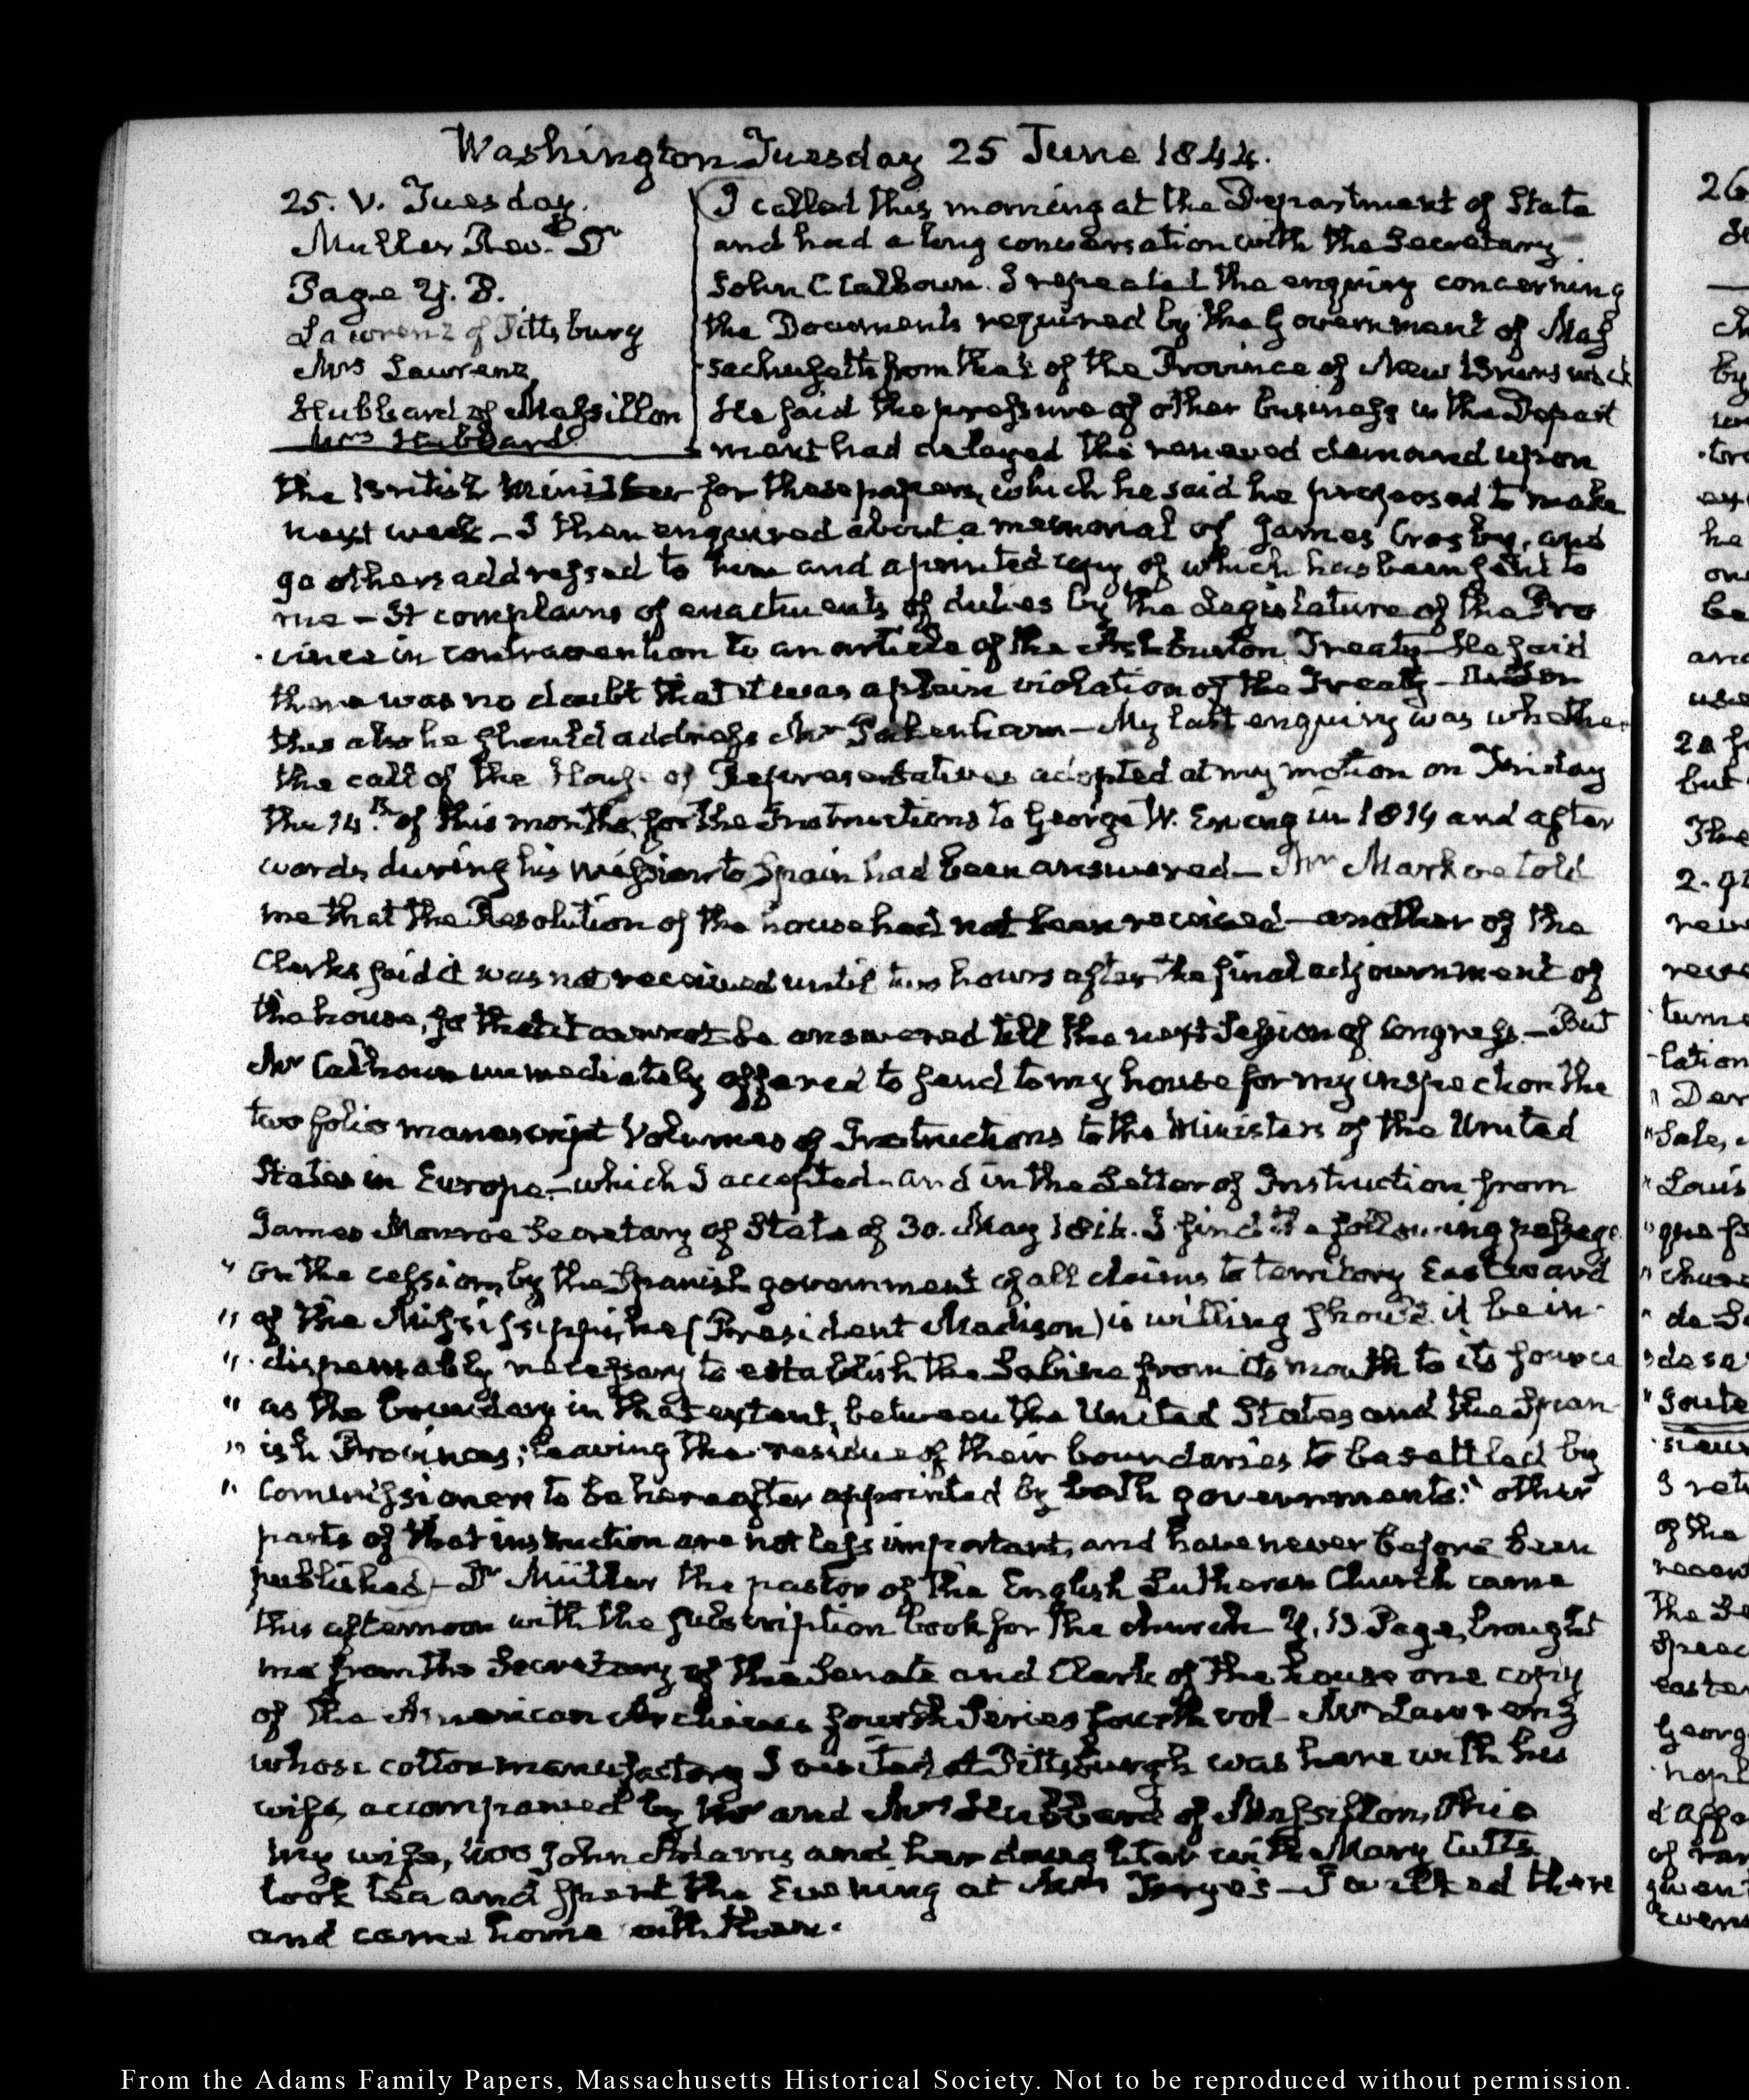 Washington Tuesday 25 June 1844.
25. V. Tuesday.
Muller Rev.d Dr
Page Y. B.
Lawrenz of Pittsburg
Mrs Lawrenz
Hubbard of Massillon
Mrs Hubbard
I called this morning at the Department of State
and had a long conversation with the Secretary
John C Calhoun. I repeated the enquiry concerning
the Documents required by the Government of Mas
sachusetts from that of the Province of New Brunswick
He said the pressure of other business in the Depart
ment had delayed the renewed demand upon
the British Minister for these papers, which he said he proposed to make
next week – I then enquired about a memorial of James Crosby, and
90 others addressed to him and a printed copy of which has been sent to
me – It complains of enactments of duties by the Legislature of the Pro
vince in contravention to an article of the Ashburton Treaty – He said
there was no doubt that it was a plain violation of the Treaty – And on
this also he should address Mr Pakenham – My last enquiry was whether
the call of the House of Representatives adopted at my motion on Friday
the 14th of this month, for the Instructions to George W. Erving in 1814 and after
wards during his mission to Spain had been answered – Mr Markoe told
me that the Resolution of the house had not been received – another of the
Clerks said it was not received until two hours after the final adjournment of
the house, so that it cannot be answered till the next Session of Congress. – But
Mr Calhoun immediately offered to send to my house for my inspection the
two folio manuscript Volumes of Instructions to the Ministers of the United
States in Europe. – which I accepted – and in the Letter of Instruction from
James Monroe Secretary of State of 30. May 1816. I find the following passage
" On the cession, by the Spanish government of all claims to territory Eastward
" of the Mississippi, he (President Madison) is willing should it be in
" dispensably necessary to establish the Sabine from its mouth to its source
" as the boundary in that extent, between the United States and the Span
" ish Provinces; leaving the residue of their boundaries to be settled by
" Commissioners to be hereafter appointed by both governments." other
parts of that instruction are not less important, and have never before been
published – Dr Müller the pastor of the English Lutheran Church came
this afternoon with the subscription book for the church Y. B Page, brought
me from the Secretary of the Senate and Clerk of the house one copy
of the American Archives fourth Series fourth vol – Mr Lawrenz
whose cotton manufactory I visited at Pittsburgh was here with his
wife, accompanied by Mr and Mrs Hubbard of Massillon, Ohio
My wife, Mrs John Adams and her daughter with Mary Cutts
took tea and spent the Evening at – I walked there
and came home with them.
From the Adams Family Papers, Massachusetts Historical Society. Not to be reproduced without permission.